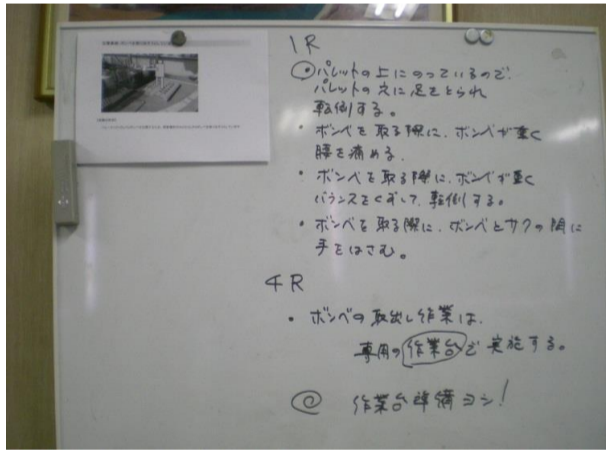 1R
⦿パレットの上にのっているので、
パレットの穴に足をとられ
転倒する。
・ボンベを取る際に、ボンベが重く
腰を痛める。
・ボンベを取る際に、ボンベが重く
バランスをくずして、転倒する。
・ボンベを取る際に、ボンベとサクの間に
手をはさむ。
4R
・ボンベの取出し作業は、
専用の作業台で実施する。
◎ 作業台準備ヨシ!